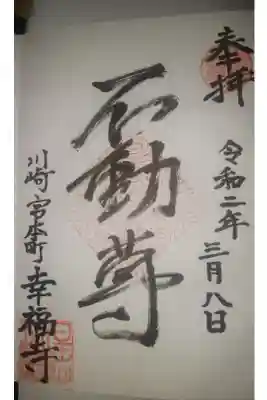 奉拝
令和二年三月八日
不動尊
川崎宮本町幸福寺